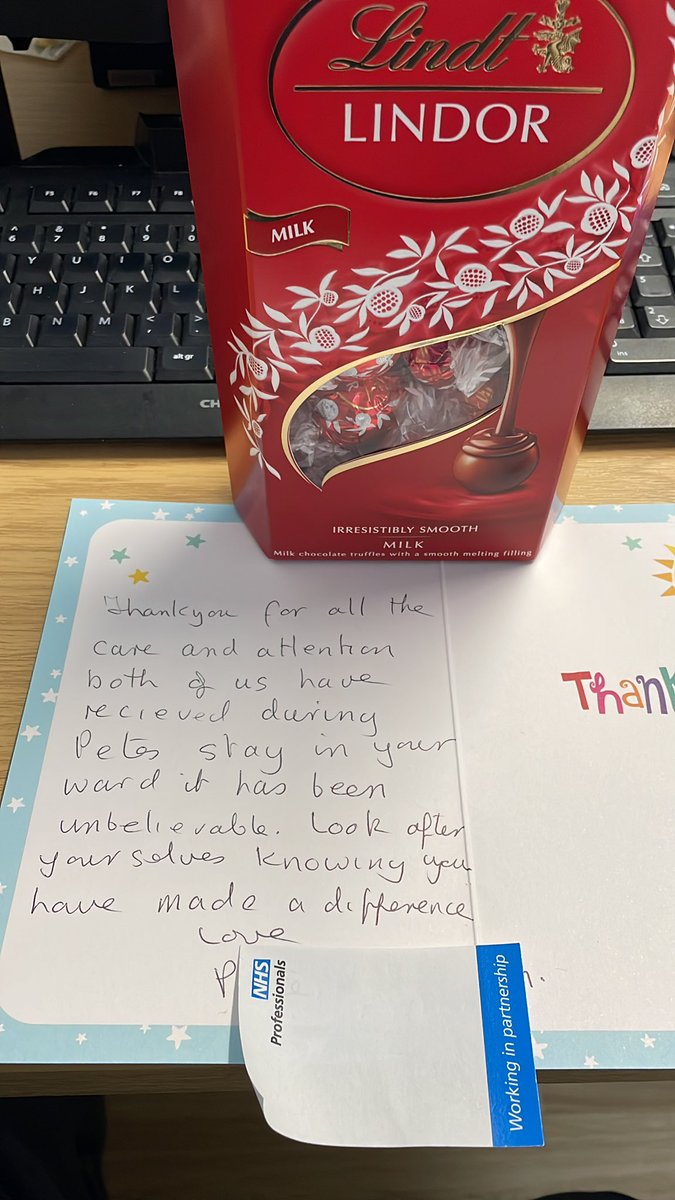 Lindt
LINDOR
MILK
IRRESISTIBLY SMOOTH
MILK
Milk chocolate truffles with a smooth melting filling
F5 F6 F7 F8
6 7 8 9 0
Y U I O
H J K L
B N M < >
alt gr
CH
2
ins
Thankyou for all the
care and attention
both of us have
recieved during
Petes stay in your
ward it has been
unbelievable. Look after
yourselves knowing you
have made a difference
Love
P
n.
Thank
NHS
Professionals
Working in partnership